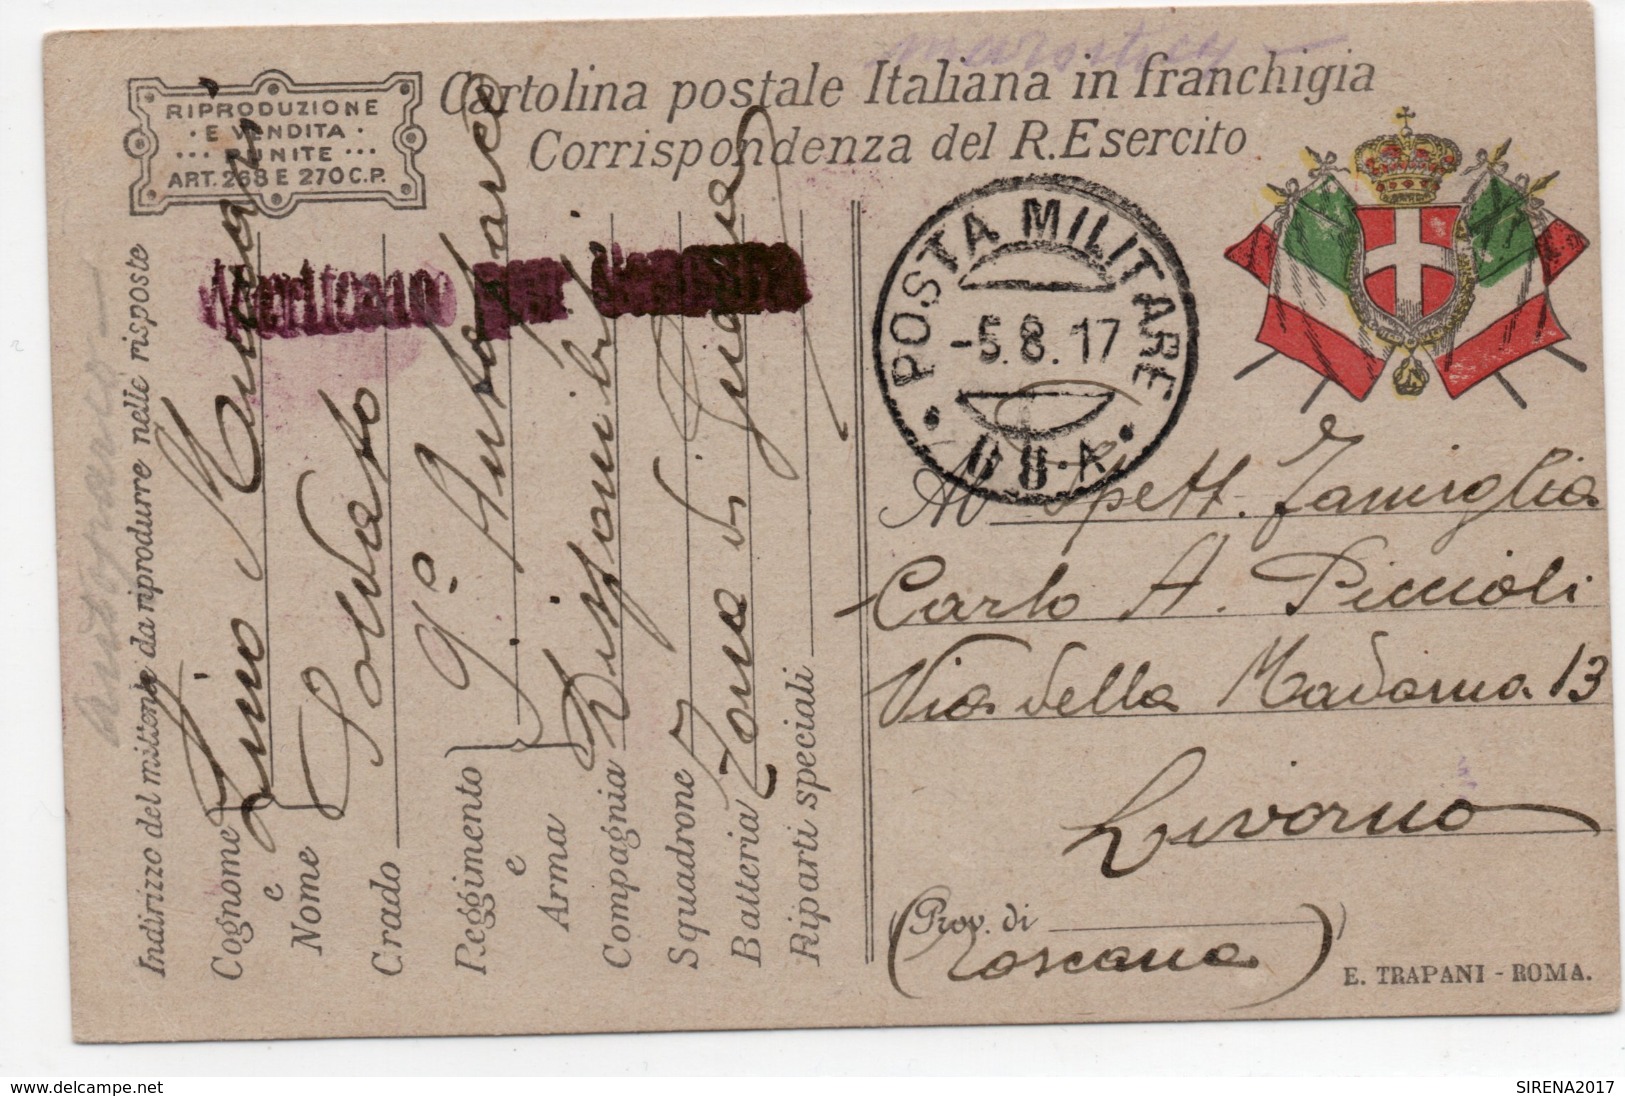 marostica
Cartolina postale Italiana in franchigia
Corrispondenza del R. Esercito
RIPRODUZIONE
· E VENDITA ·
··· RIUNITE ···
ART. 268 E 270 C.P.
autoparco
Indirizzo del mittente da riprodurre nelle risposte
Cognome e Nome Lino
Grado Soldato
Reggimento e Arma Autoparco
Compagnia Disponibili
Squadrone
Batteria Zona di Guerra
Riparti speciali
Verificato per
POSTA MILITARE
-5.8.17
Al Spett. Famiglia
Carlo A. Piccioli
Via della Madonna 13
Livorno
(Prov. di
Toscana)
E. TRAPANI - ROMA.
www.delcampe.net
SIRENA2017